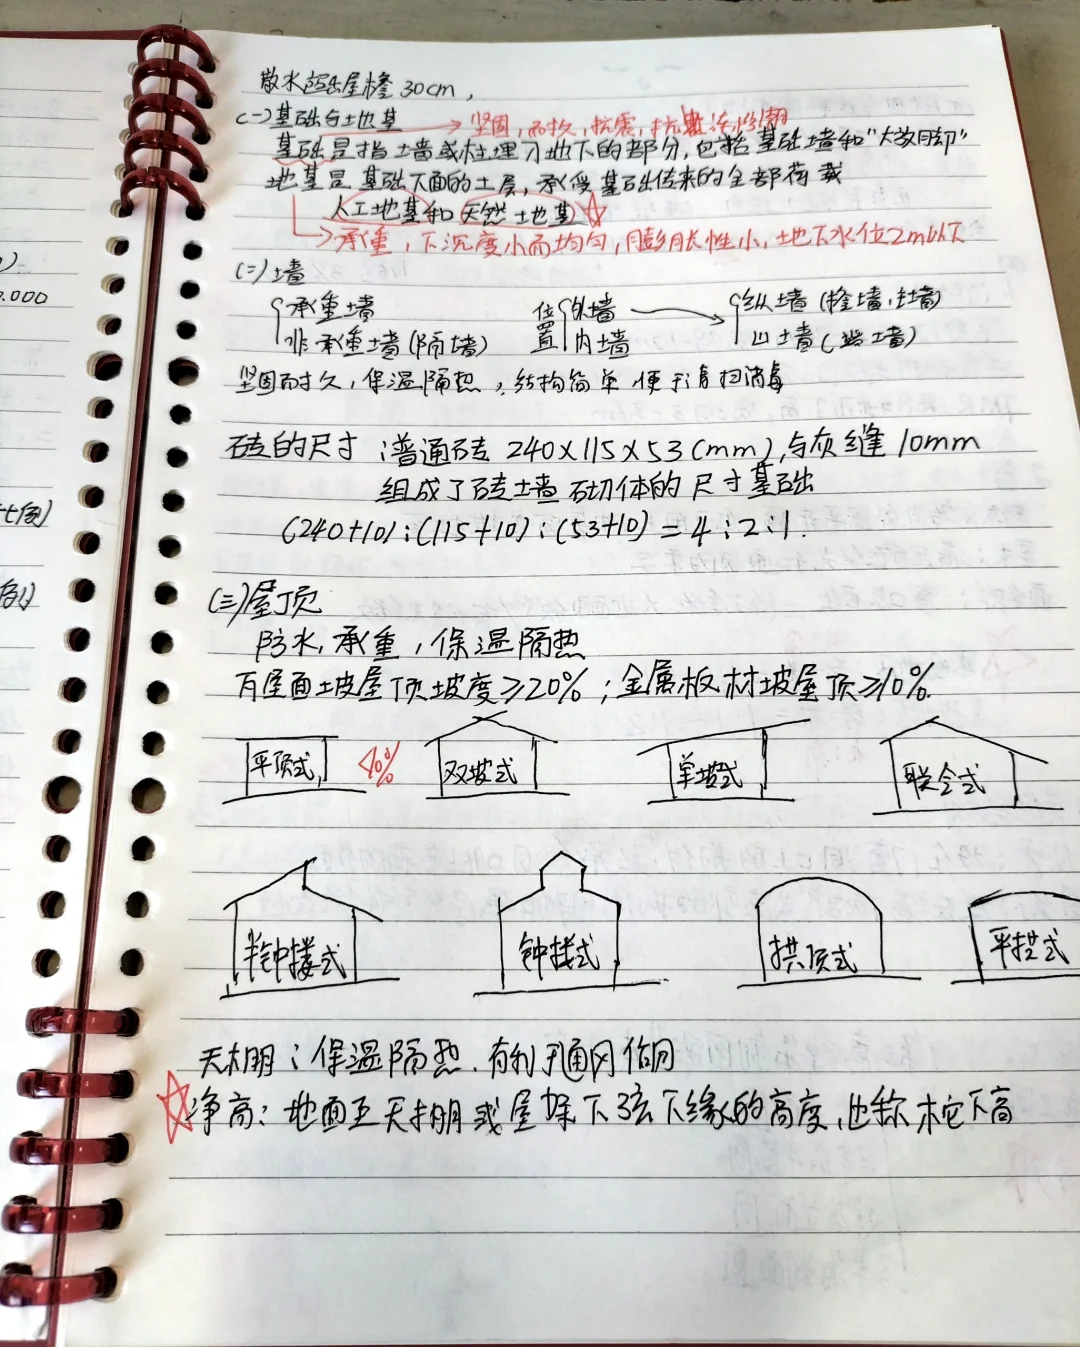 )
0.000
散水超出屋檐30cm,
(一)基础与地基
→坚固,而持久,抗震,抗冻
基础是指墙或柱埋于地下的部分,包括基础墙和"大放脚"
地基是基础下面的土层,承受基础传来的全部荷载
人工地基和天然土地基☆
→承重,下沉度小而均匀,膨胀性小,地下水位2m以下
(二)墙
承重墙 位置 外墙 → 纵墙(檐墙,主墙)
非承重墙(隔墙) 内墙 山墙(端墙)
坚固耐久,保温隔热,结构简单 便于清扫消毒
砖的尺寸:普通砖 240×115×53(mm),与灰缝10mm
组成了砖墙砌体的尺寸基础
(240+10):(115+10):(53+10)=4:2:1.
(三)屋顶
防水,承重,保温隔热
瓦屋面坡屋顶坡度≥20%;金属板材坡屋顶≥10%.
平顶式 双坡式 单坡式 联合式
半钟楼式 钟楼式 拱顶式 平拱式
天棚:保温隔热.有利于通风作用
☆净高:地面至天棚或屋架下弦下缘的高度,也称柁下高